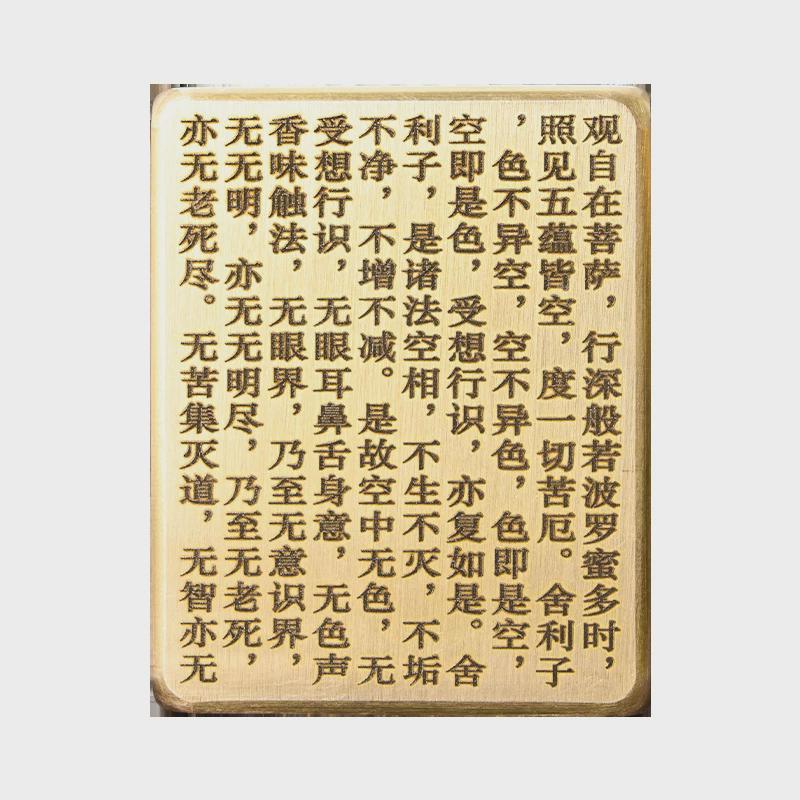 观自在菩萨，行深般若波罗蜜多时，
照见五蕴皆空，度一切苦厄。舍利子
，色不异空，空不异色，色即是空，
空即是色，受想行识，亦复如是。舍
利子，是诸法空相，不生不灭，不垢
不净，不增不减。是故空中无色，无
受想行识，无眼耳鼻舌身意，无色声
香味触法，无眼界，乃至无意识界，
无无明，亦无无明尽，乃至无老死，
亦无老死尽。无苦集灭道，无智亦无